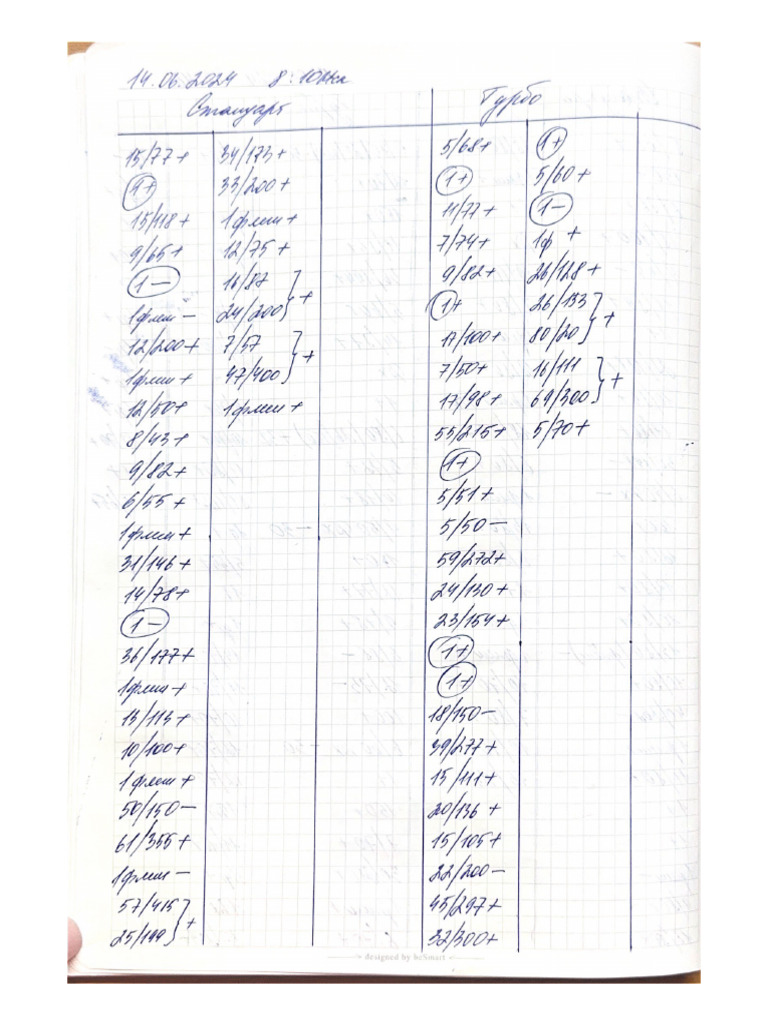 14.06.2024 8:10
Стандарт Турбо
15/77+ 34/173+ 5/68+ 1+
1+ 33/200+ 1+ 5/60+
15/118+ 1флеш+ 11/77+ 1-
9/65+ 12/75+ 7/74+ 1ф +
1- 16/87 9/82+ 26/128+
1флеш- 24/200 + 1+ 26/133
12/200+ 7/57 17/100+ 80/20 +
1флеш+ 47/400 + 7/50+ 16/111
12/50+ 1флеш+ 17/98+ 69/300 +
8/43+ 55/215+ 5/70+
9/82+ 1+
6/55+ 5/51+
1флеш+ 5/50-
31/146+ 59/272+
14/78+ 24/130+
1- 23/154+
36/177+ 1+
1флеш+ 1+
13/113+ 18/150-
10/100+ 39/277+
1флеш+ 15/111+
50/150- 20/136+
61/355+ 15/105+
1флеш- 22/200-
57/415 45/297+
25/199 + 32/300+
designed by beSmart